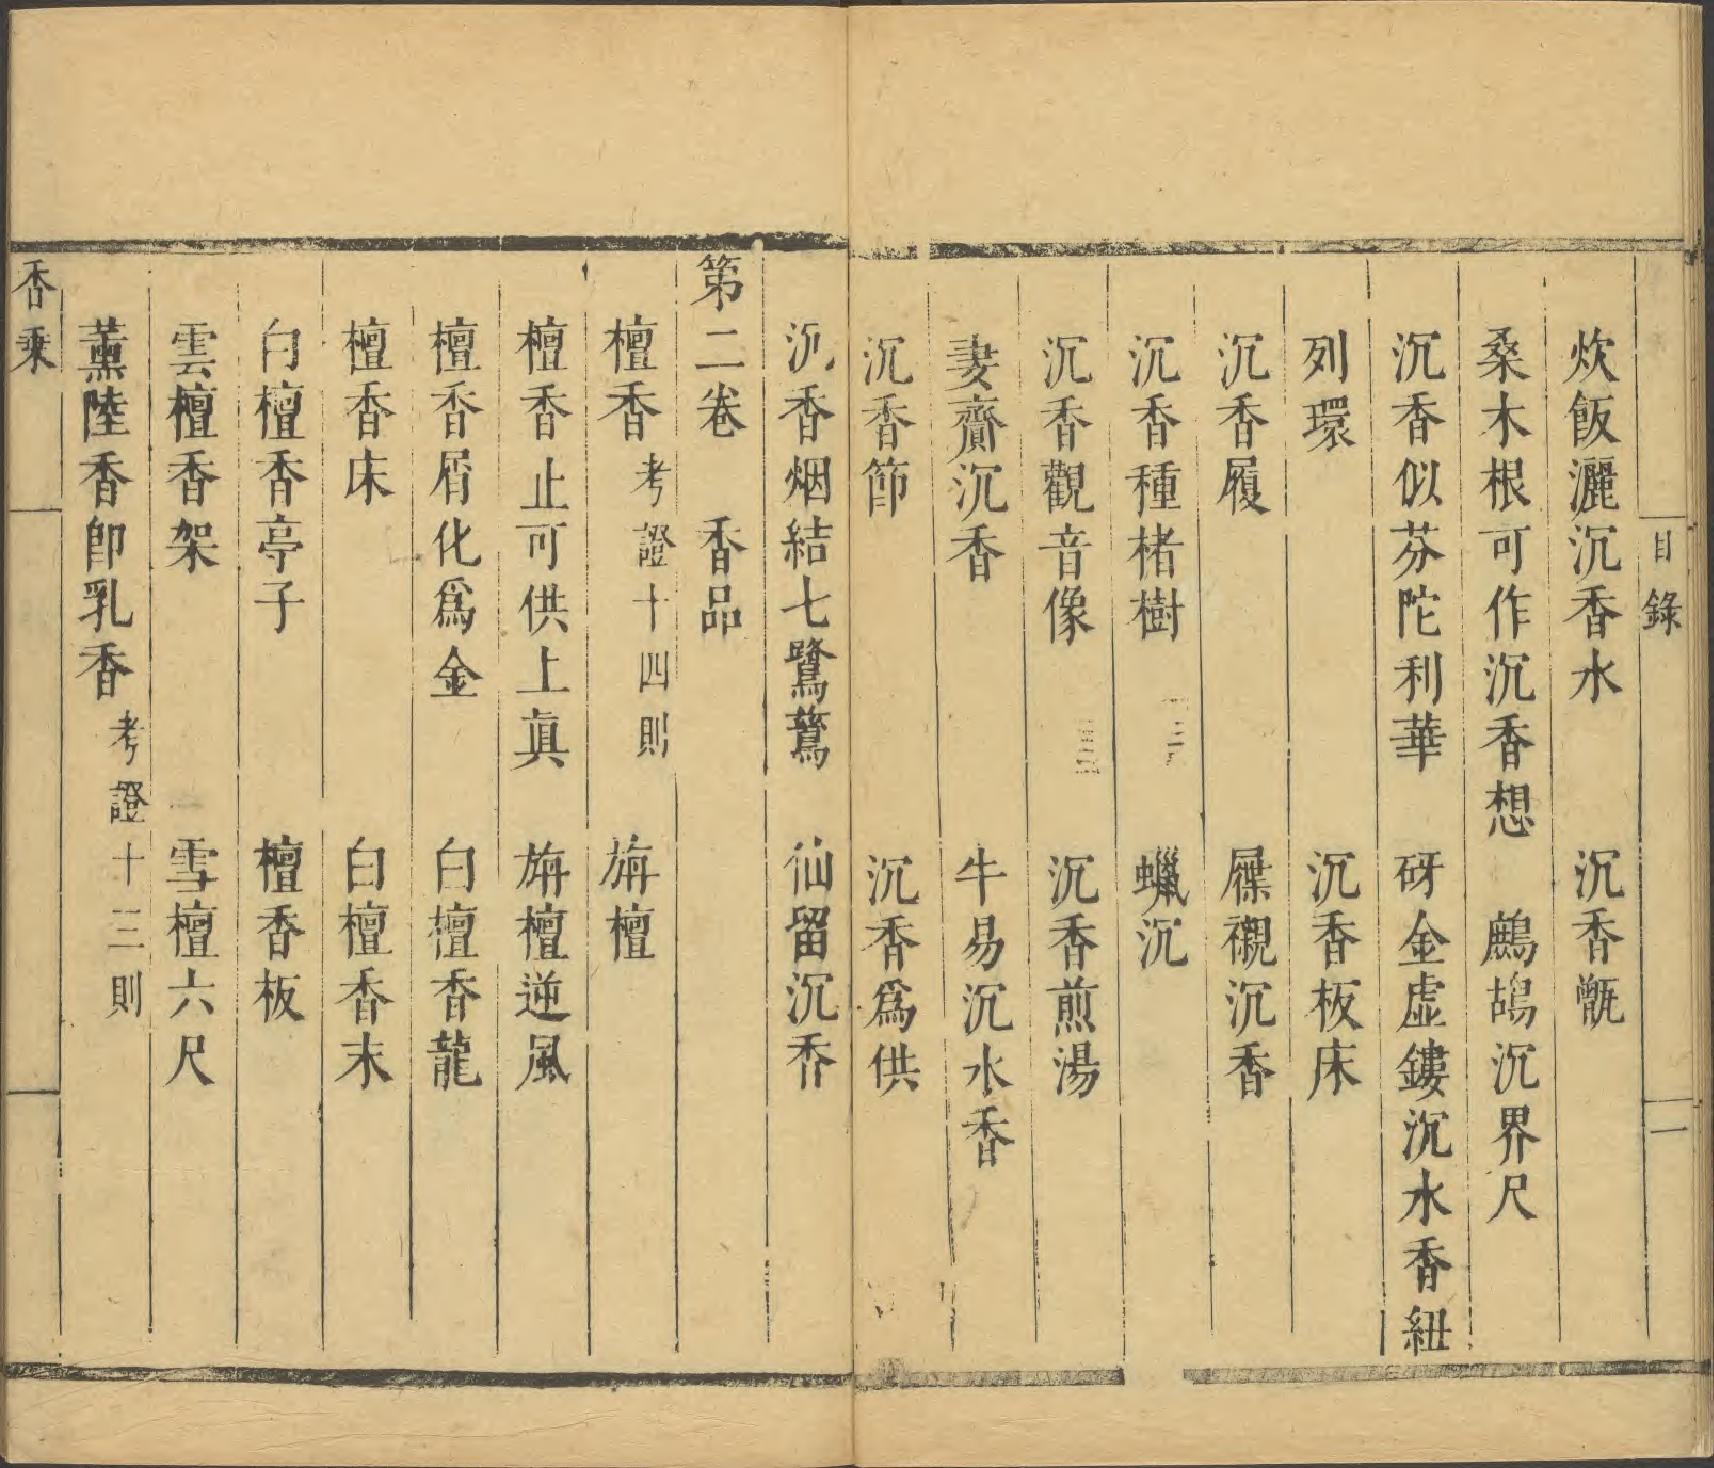 目錄 二
炊飯灑沉香水 沉香甑
桑木根可作沉香想 鷓鴣沉界尺
沉香似芬陀利華 砑金虛鏤沉水香紐
列環 沉香板床
沉香履 屧襯沉香
沉香種楮樹 蠟沉
沉香觀音像 沉香煎湯
妻齎沉香 牛易沉水香
沉香節 沉香爲供
沉香烟結七鷺鷥 仙留沉香
第二卷 香品
檀香 考證十四則 旃檀
檀香止可供上眞 旃檀逆風
檀香屑化爲金 白檀香龍
檀香床 白檀香末
白檀香亭子 檀香板
雲檀香架 雪檀六尺
薰陸香卽乳香 考證十三則
香乘